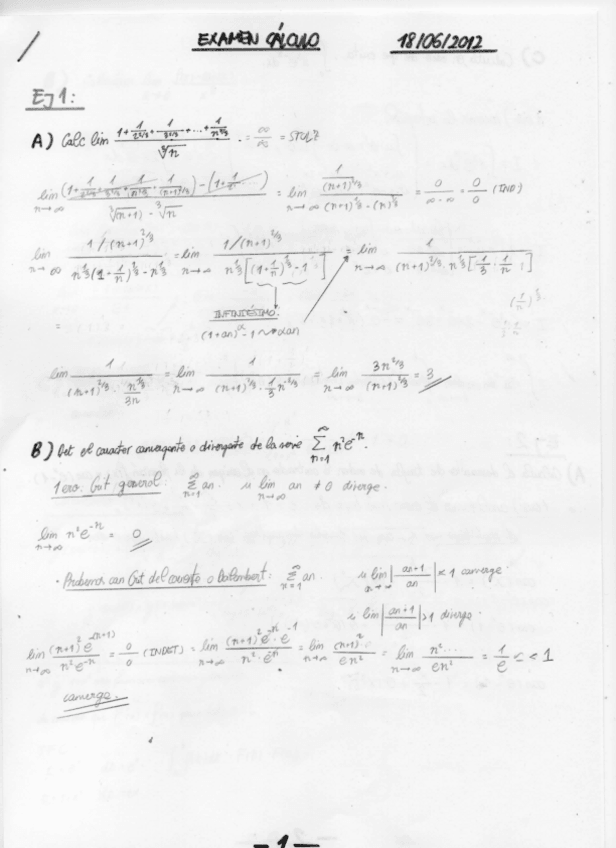 EXAMEN CÁLCULO 18/06/2012
Ej 1:
A) Calc lim (1 + 1/2^(2/3) + 1/3^(2/3) + ... + 1/n^(2/3)) / ∛n = ∞/∞ = STOLZ
lim n→∞ ((1 + 1/2^(2/3) + 1/3^(2/3) + 1/n^(2/3) + 1/(n+1)^(2/3)) - (1 + 1/2 ...)) / (∛(n+1) - ∛n) = lim n→∞ (1/(n+1)^(2/3)) / ((n+1)^(1/3) - (n)^(1/3)) = 0/(∞-∞) = 0/0 (IND)
lim n→∞ (1/(n+1)^(2/3)) / (n^(1/3)(1+1/n)^(1/3) - n^(1/3)) = lim n→∞ (1/(n+1)^(2/3)) / (n^(1/3)[(1+1/n)^(1/3) - 1]) = lim n→∞ 1 / ((n+1)^(2/3) · n^(1/3)[1/3 · 1/n])
INFINITÉSIMO
(1+an)^α - 1 ~ αan
lim 1 / ((n+1)^(2/3) · n^(1/3)/3n) = lim n→∞ 1 / ((n+1)^(2/3) · 1/3 n^(-2/3)) = lim n→∞ 3n^(2/3) / (n+1)^(2/3) = 3
B) Det el caracter convergente o divergente de la serie ∑ n=1 ∞ n²e^-n.
1ero. Crit general: ∑ n=1 ∞ an. si lim n→∞ an ≠ 0 diverge.
lim n→∞ n²e^-n = 0
· Probamos con Crit del cociente o Dalembert: ∑ n=1 ∞ an si lim n→∞ |an+1/an| < 1 converge
si lim |an+1/an| > 1 diverge.
lim n→∞ (n+1)² e^-(n+1) / n²e^-n = 0/0 (INDET) = lim n→∞ (n+1)² e^-n · e^-1 / n² · e^-n = lim n→∞ (n+1)² / en² = lim n→∞ n²... / en² = 1/e < 1
converge.
- 1 -